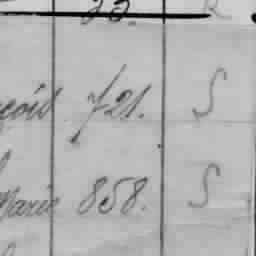 çois 721. S
Marie 858. S